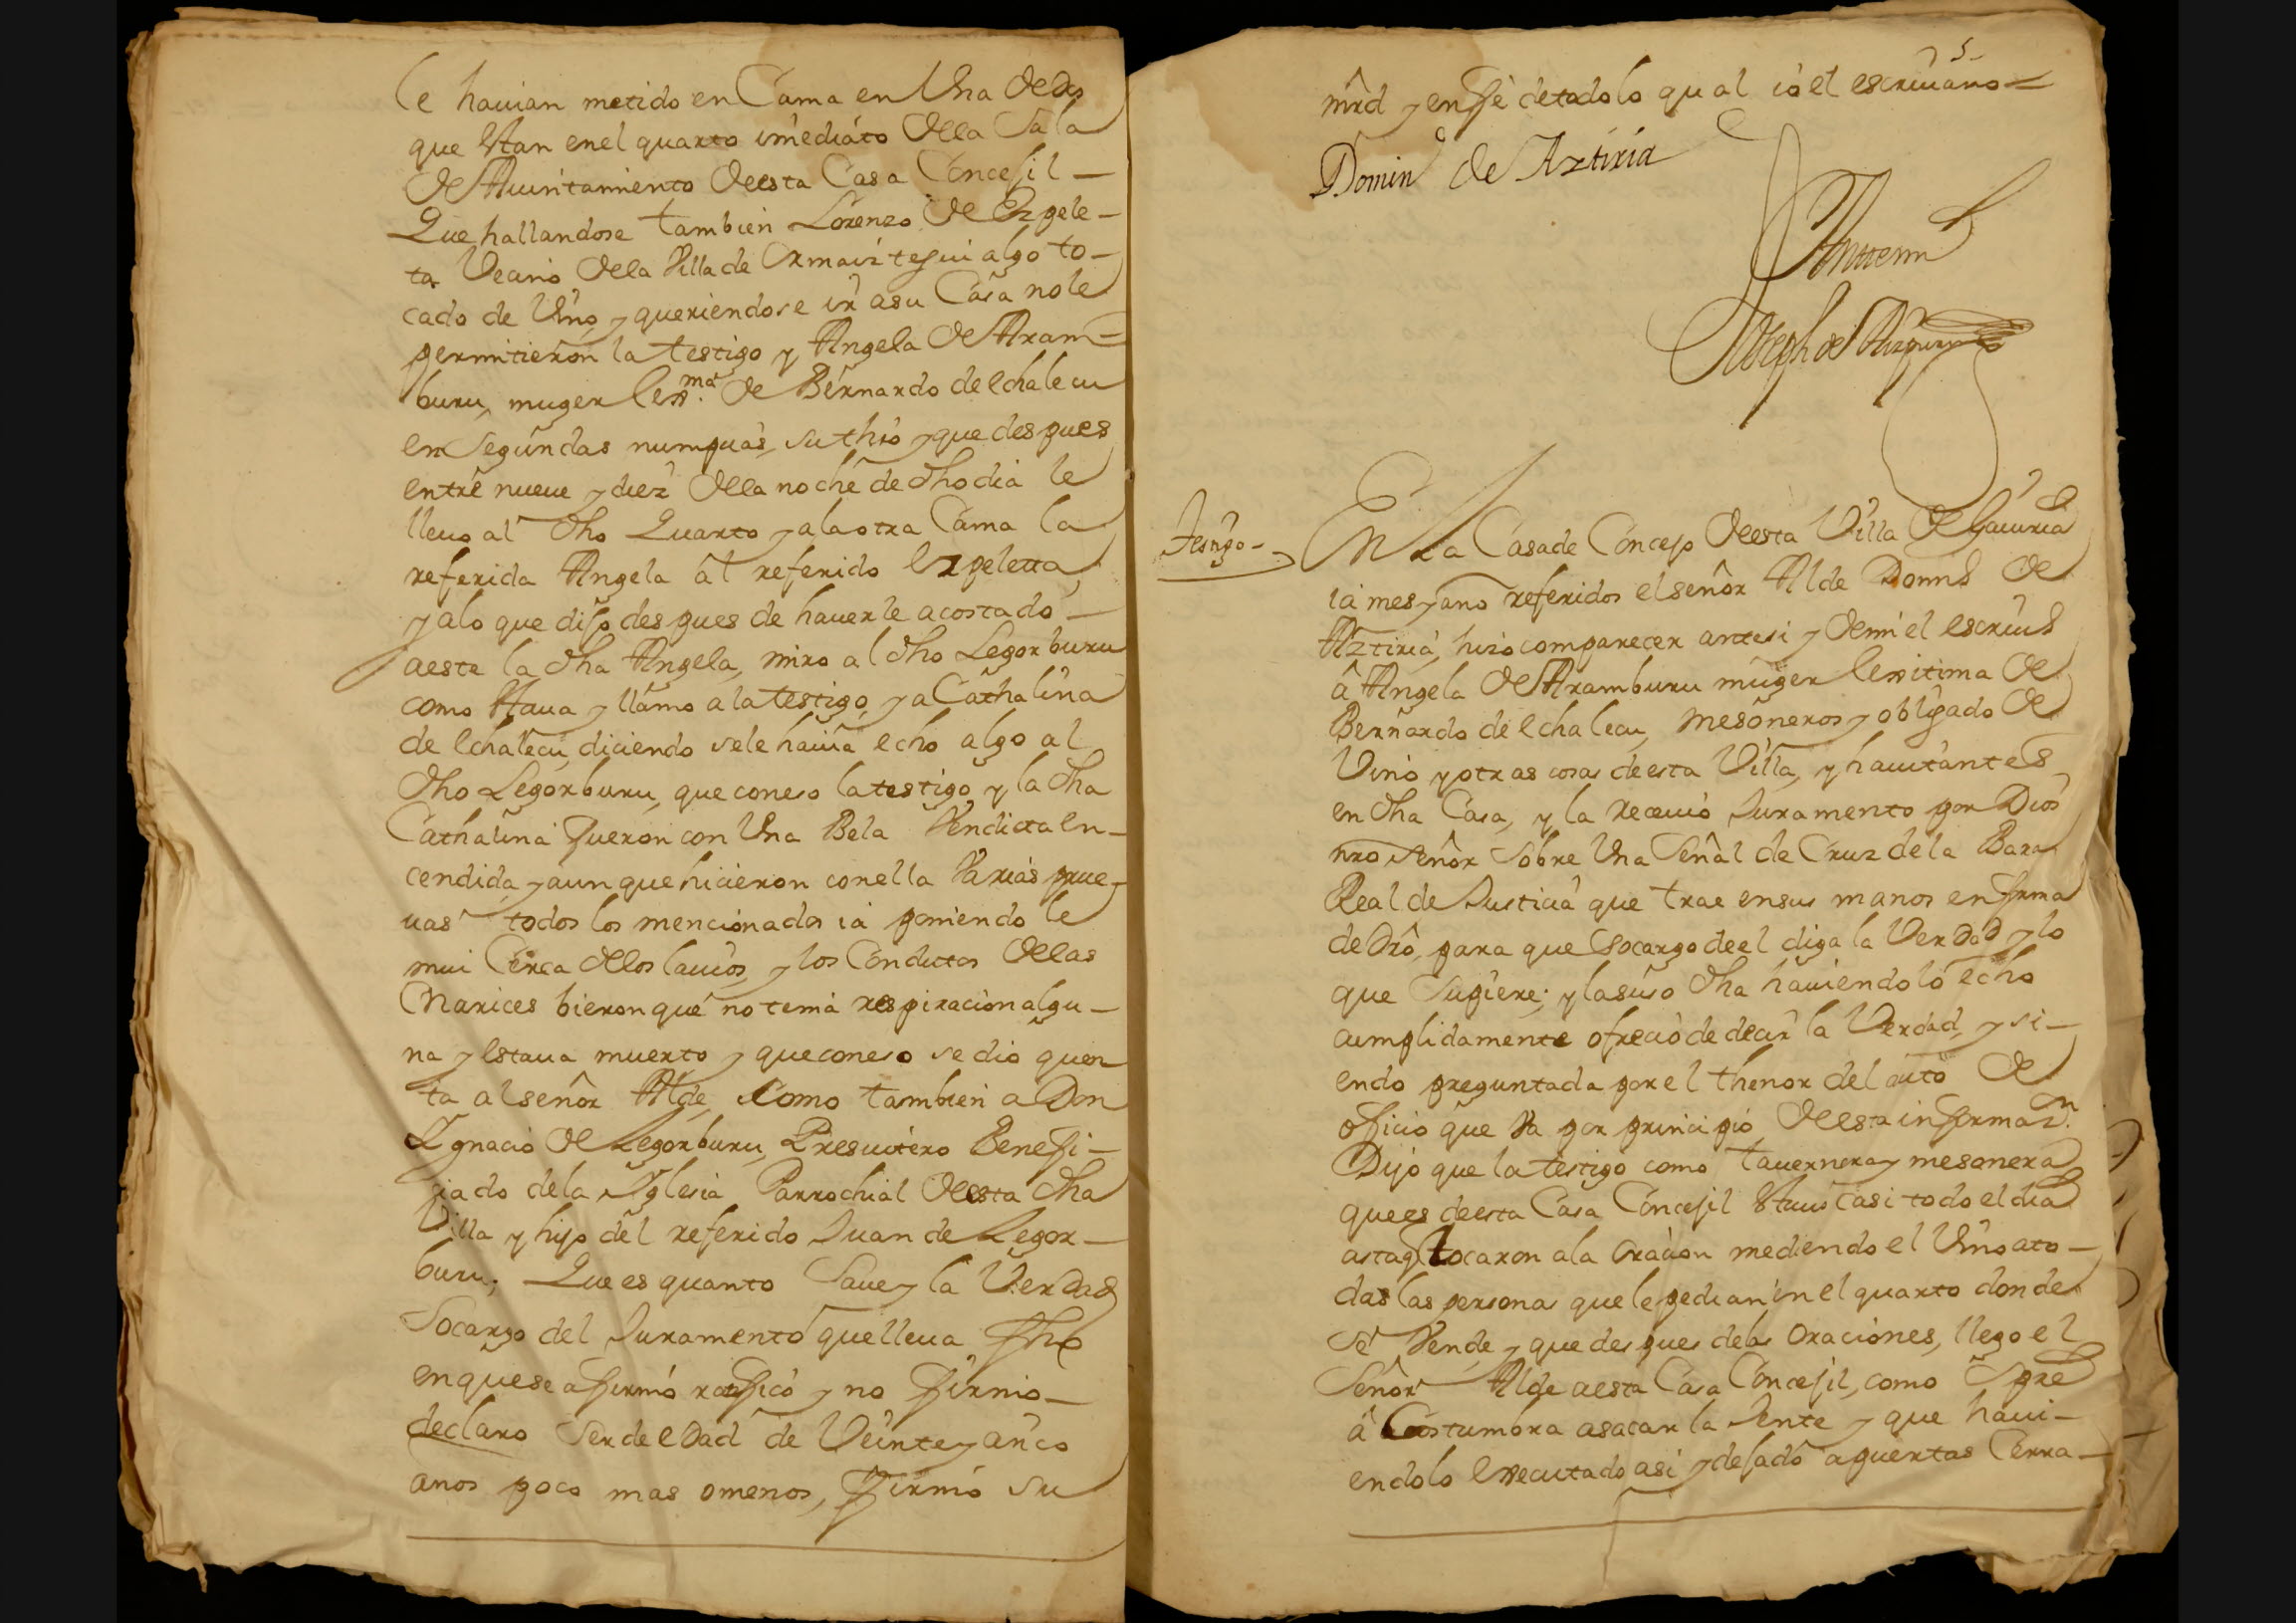 le havian metido en Cama en Una de dos
que stan en el quarto imediato de la Sala
de Auintamiento de esta Casa Concejil —
Que hallandose tambien Lorenzo de Ezpele-
ta Vecino de la Villa de Ormaiztegui algo to-
cado de Vino, y queriendose ir a su Casa no le
permitieron la testigo y Angela de Aram=
buru, muger lexma. de Bernardo de Echalecu
en Segundas numpcias, su thio y que despues
entre nueve y diez de la noche de dho dia le
llevo al dho Quarto y a la otra Cama la
referida Angela al referido Ezpeletta,
y a lo que dijo despues de haverle acostado —
a este la dha Angela, miro al dho Legorburu
como stava y llamo a la testigo, y a Cathalina
de Echalecu, diciendo se le havia echo algo al
dho Legorburu, que con eso la testigo y la dha
Cathalina fueron con Una Bela Vendicta en-
cendida, y aunque hicieron con ella Varias prue-
vas todos los mencionados ia poniendo le
mui Cerca de los lavios, y los Conductos de las
Narices bieron que no tenia respiracion algu-
na y Estava muerto y que con eso se dio quen
ta al señor Alde, Como tambien a Don
Ygnacio de Legorburu, Presvitero Benefi-
ciado de la Yglesia Parrochial de esta dha
Villa y hijo del referido Juan de Legor-
buru; Que es quanto Save y la Verdad
Socargo del Juramento que lleva fho
en que se afirmó ratificó y no firmo —
declaro Ser de edad de Veinte y cinco
anos poco mas o menos, firmó su
5
mrd y en fè de todo lo qual io el escrivano =
Domin de Aztiria
Antemi
Joseph de Aizpuru
Testigo —
En la Casa de Concejo de esta Villa de Gaviria
ia mes y ano referidos el señor Alde Domo de
Aztiria, hizo comparecer ante si y de mi el escrivo
â Angela de Aramburu muger lexitima de
Bernardo de Echalecu, Mesoneros y obligado de
Vino y otras cosas de esta Villa, y havitantes
en dha Casa, y la recevió Juramento por Dios
nro Señor Sobre Una Señal de Cruz de la Bara
Real de Justicia que trae en sus manos en forma
de dro, para que Socargo de el diga la Verdad y lo
que Supiere; y la suso dha haviendolo echo
cumplidamente ofreció de decir la Verdad, y si-
endo preguntada por el thenor del auto de
oficio que Va por principio de esta informazn.
Dijo que la testigo como tavernera y mesonera
que es de esta Casa Concejil stuvo casi todo el dia
asta q tocaron a la oracion mediendo el Vino a to-
das las personas que le pedian in el quarto donde
se Vende, y que despues de las Oraciones, llego el
Señor Alde a esta Casa Concejil, como Spre
â Costumbra a sacar la Jente y que havi-
endolo Executado asi y dejado a puertas Cerra-